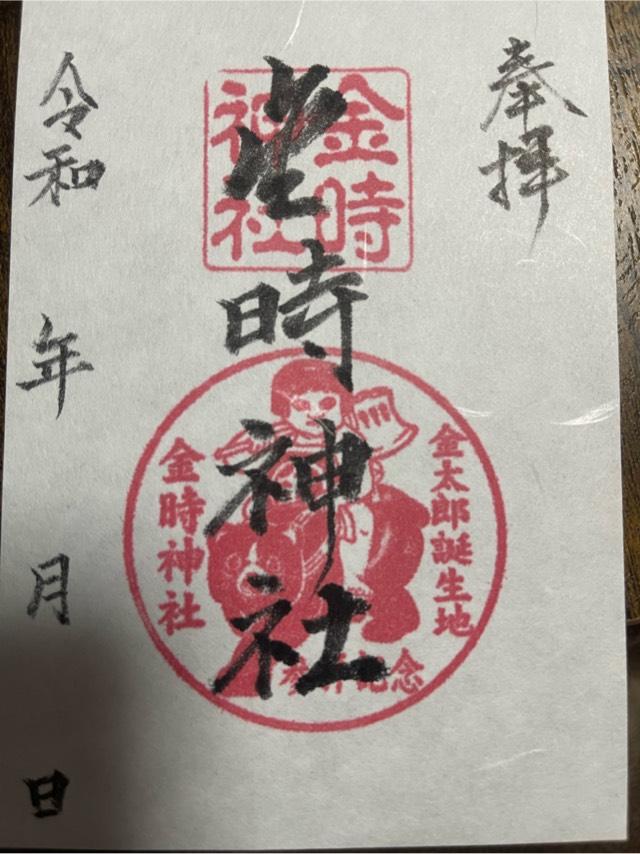 奉拝
金時神社
金時
神社
金太郎誕生地
金時神社
参拝記念
令和 年 月 日